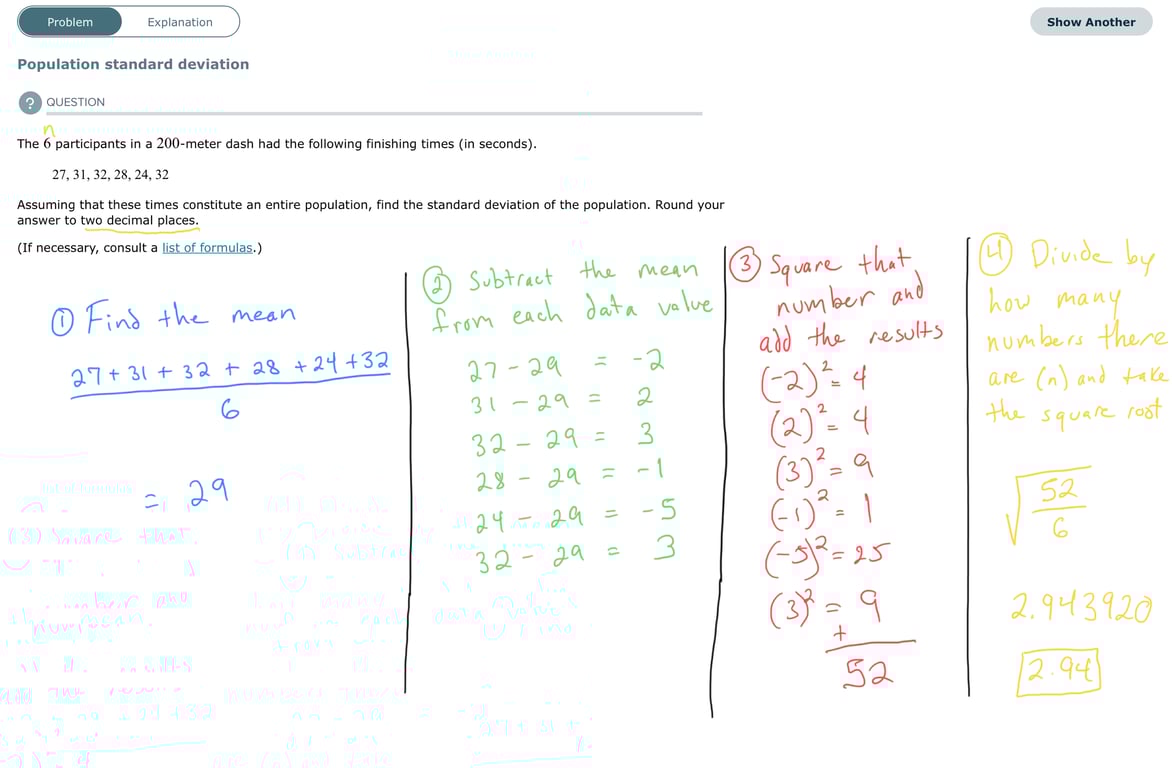 Problem
Explanation
Show Another
Population standard deviation
? QUESTION
n
The 6 participants in a 200-meter dash had the following finishing times (in seconds).
27, 31, 32, 28, 24, 32
Assuming that these times constitute an entire population, find the standard deviation of the population. Round your
answer to two decimal places.
(If necessary, consult a list of formulas.)
① Find the mean
27 + 31 + 32 + 28 + 24 + 32
6
= 29
② Subtract the mean
from each data value
27 - 29 = -2
31 - 29 = 2
32 - 29 = 3
28 - 29 = -1
24 - 29 = -5
32 - 29 = 3
③ Square that
number and
add the results
(-2)² = 4
(2)² = 4
(3)² = 9
(-1)² = 1
(-5)² = 25
(3)² = 9
+
52
④ Divide by
how many
numbers there
are (n) and take
the square root
√52
6
2.943920
2.94